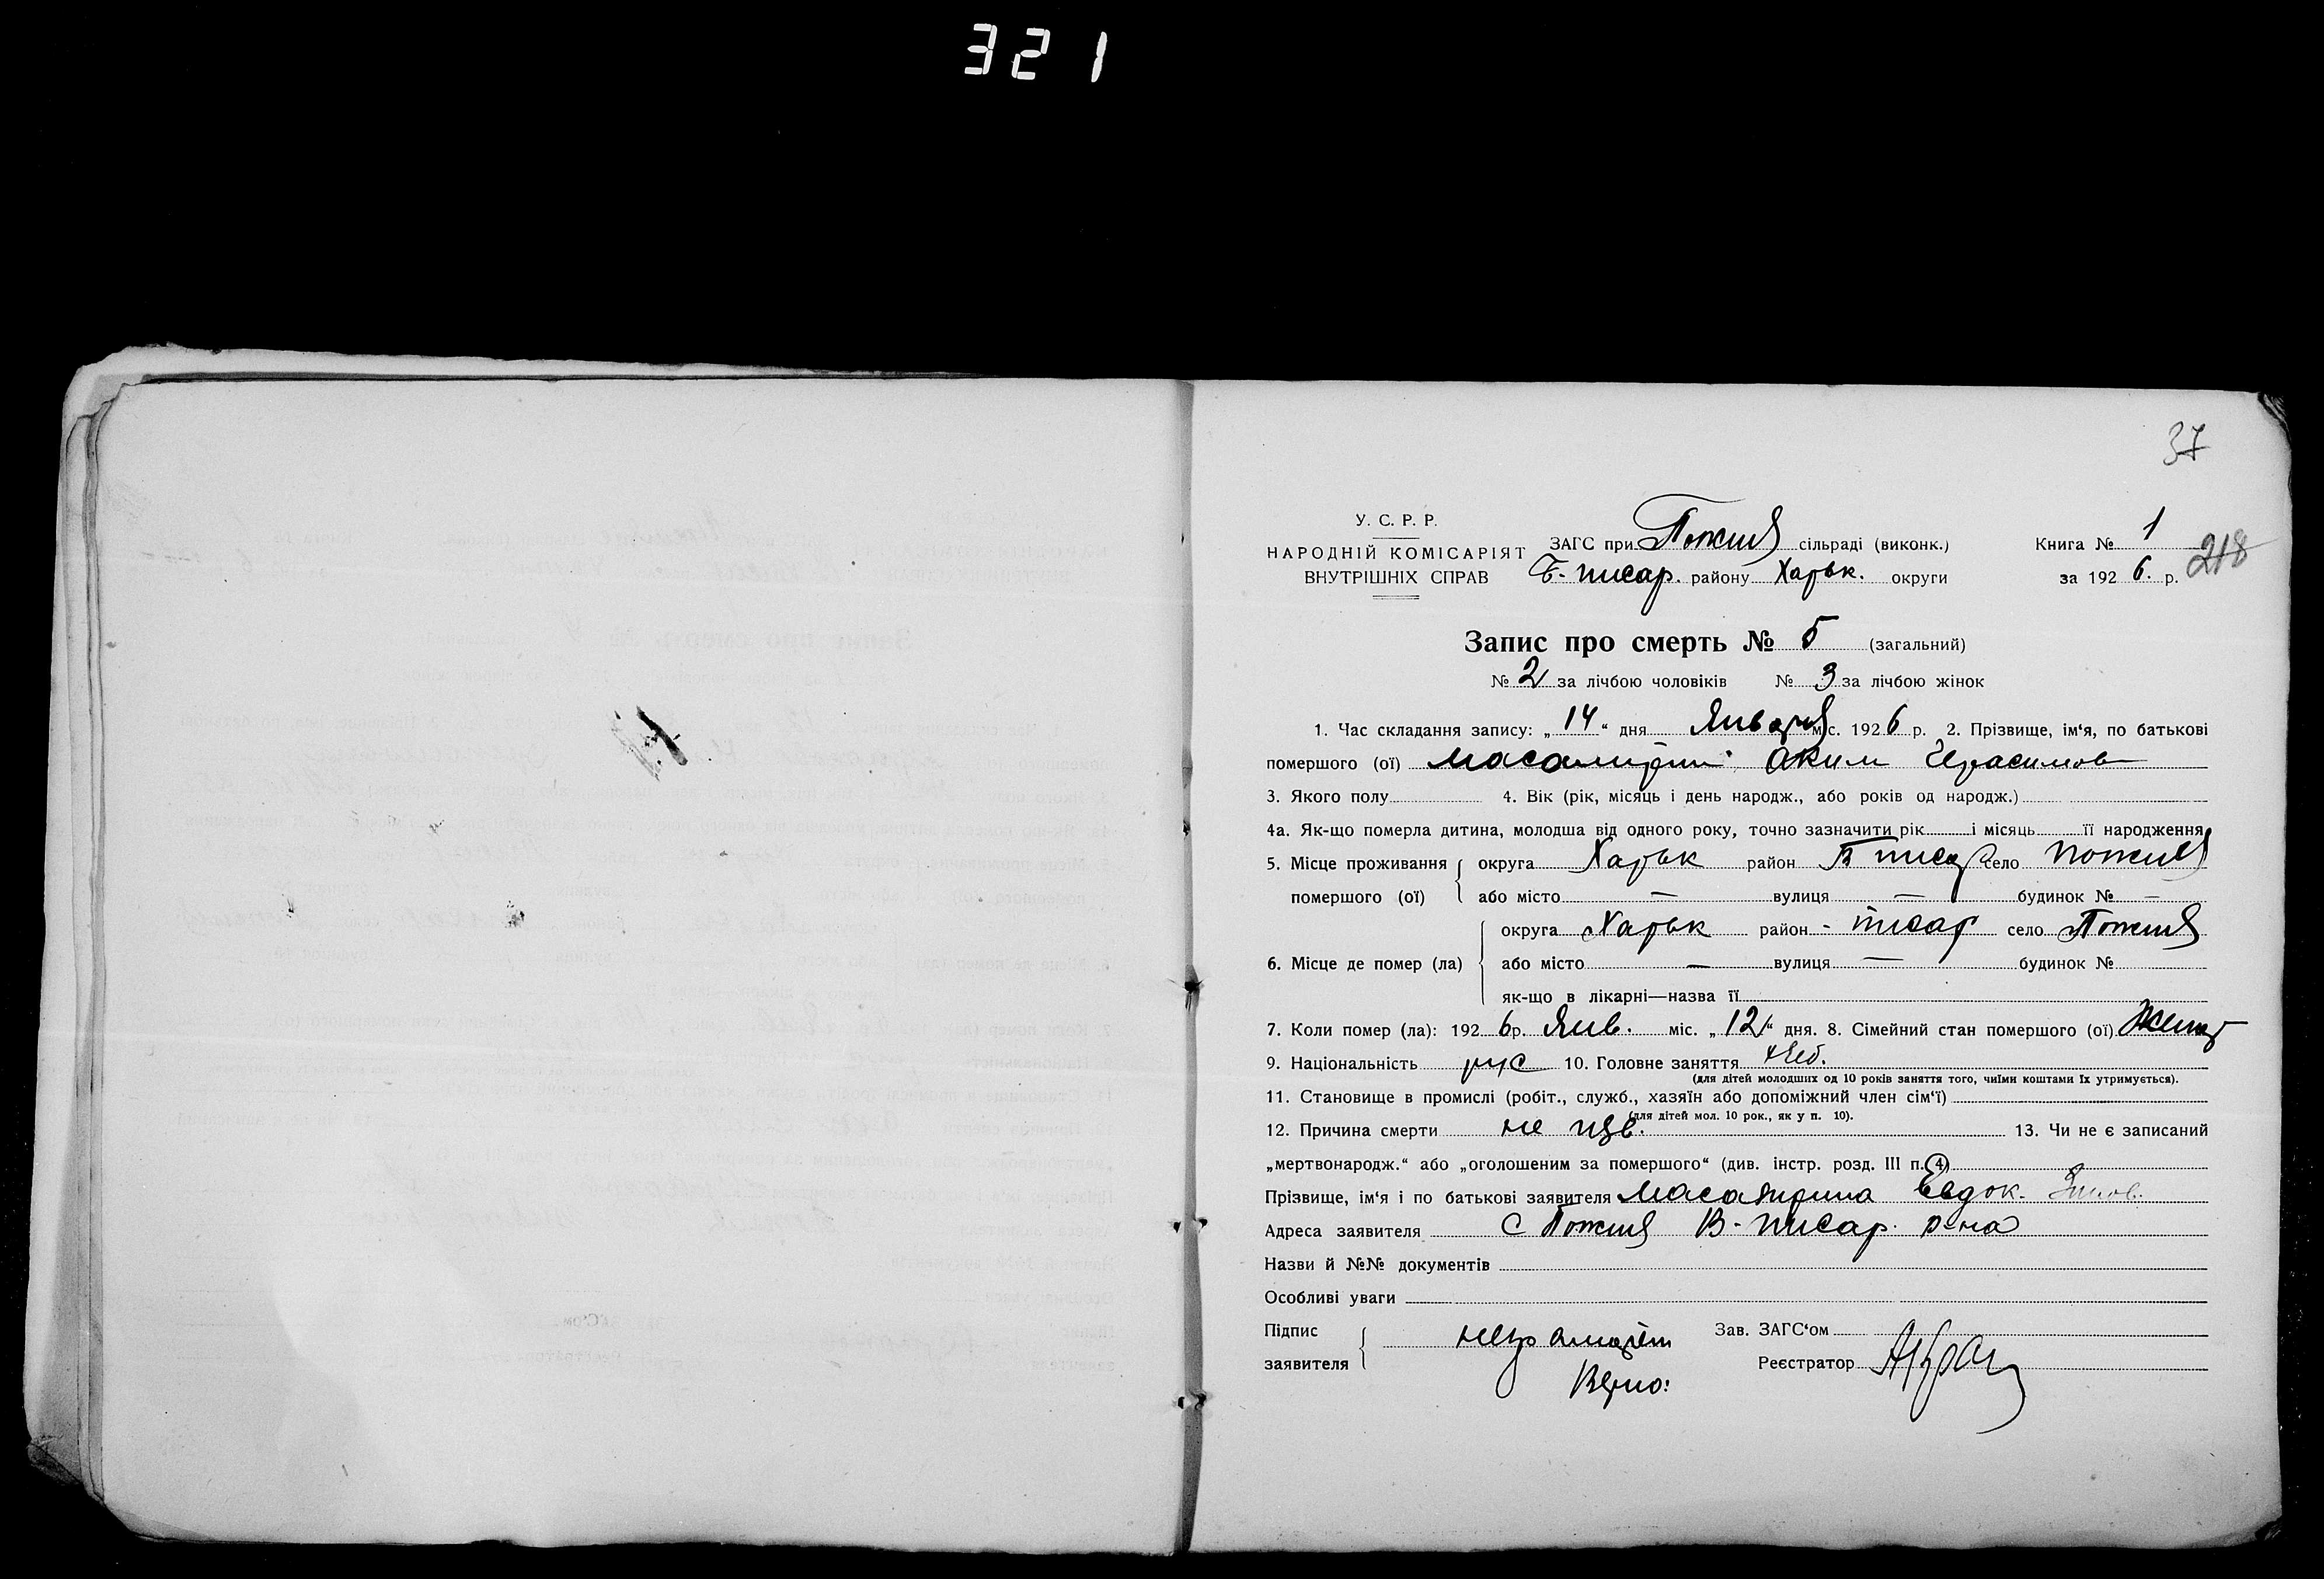 321
37
У. С. Р. Р.
НАРОДНІЙ КОМІСАРІЯТ
ВНУТРІШНІХ СПРАВ
ЗАГС при Пожня сільраді (виконк.)
Б-писар. району Харьк. округи
Книга № 1
за 1926. р.
218
Запис про смерть № 5 (загальний)
№ 2 за лічбою чоловіків № 3 за лічбою жінок
1. Час складання запису: „14“ дня Января міс. 1926 р. 2. Прізвище, ім‘я, по батькові
помершого (ої) Аким Герасимов
3. Якого полу 4. Вік (рік, місяць і день народж., або років од народж.)
4а. Як-що померла дитина, молодша від одного року, точно зазначити рік і місяць її народження
5. Місце проживання помершого (ої) округа Харьк район В писар село Пожня
або місто — вулиця — будинок № —
6. Місце де помер (ла) округа Харьк район - писар село Пожня
або місто — вулиця — будинок №
як-що в лікарні—назва її
7. Коли помер (ла): 1926р. Янв. міс. „12“ дня. 8. Сімейний стан помершого (ої) Женат
9. Національність рус 10. Головне заняття хлеб.
(для дітей молодших од 10 років заняття того, чиїми коштами їх утримується).
11. Становище в промислі (робіт., служб., хазяїн або допоміжний член сім‘ї)
(для дітей мол. 10 рок., як у п. 10).
12. Причина смерти не изв. 13. Чи не є записаний
„мертвонародж.“ або „оголошеним за помершого“ (див. інстр. розд. III п. 4)
Прізвище, ім‘я і по батькові заявителя Евдок.
Адреса заявителя С Пожня В-писар. р-на
Назви й №№ документів
Особливі уваги
Підпис заявителя неграмотен
Зав. ЗАГС‘ом
Реєстратор
Верно: